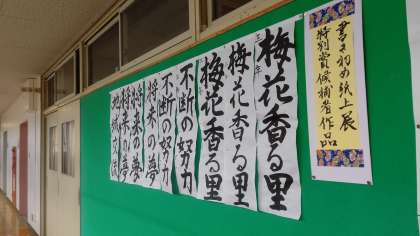 書き初め紙上展
特別賞候補者作品
梅花香る里
梅花香る里
梅花香る里
不断の努力
不断の努力
将来の夢
将来の夢
将来の夢